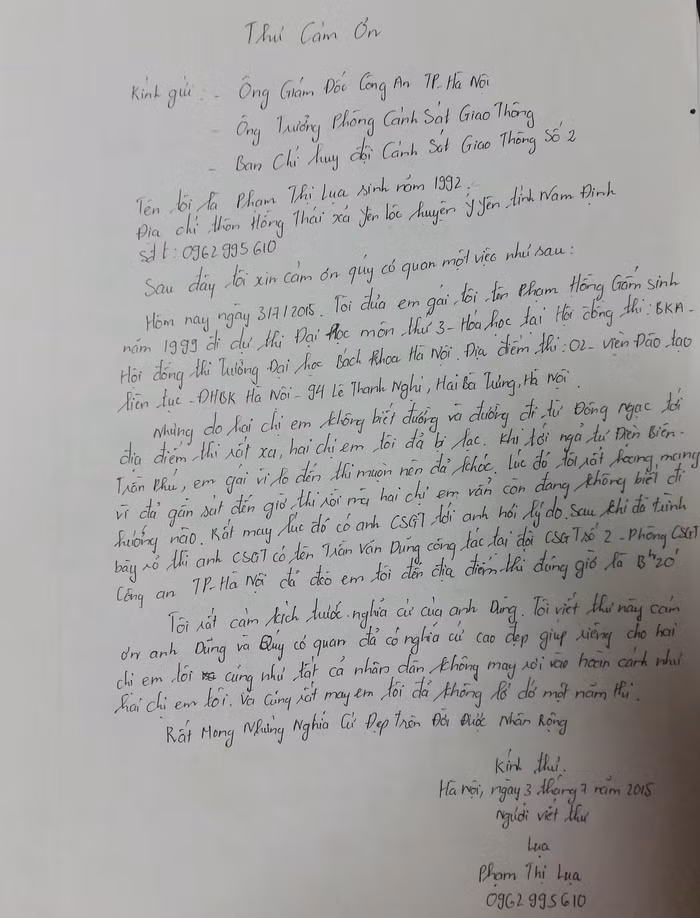 Thư Cảm Ơn
Kính gửi: - Ông Giám Đốc Công An TP-Hà Nội
- Ông Trưởng Phòng Cảnh Sát Giao Thông
- Ban Chỉ huy đội Cảnh Sát Giao Thông Số 2
Tên tôi là Phạm Thị Lụa sinh năm 1992.
Địa chỉ thôn Hồng Thái xã Yên Lộc huyện Ý Yên tỉnh Nam Định
Sđt: 0962995610
Sau đây tôi xin cảm ơn qúy cơ quan một việc như sau:
Hôm nay ngày 3/7/2015. Tôi đưa em gái tôi tên Phạm Hồng Gấm sinh
năm 1999 đi dự thi Đại Học môn thứ 3 - Hóa học tại Hội đồng thi: BKA -
Hội đồng thi Trường Đại học Bách Khoa Hà Nội. Địa điểm thi: 02- Viện Đào tạo
liên tục - ĐHBK Hà Nội - 94 Lê Thanh Nghị, Hai Bà Trưng, Hà Nội.
Nhưng do hai chị em không biết đường và đường đi từ Đông Ngạc tới
địa điểm thi rất xa, hai chị em tôi đã bị lạc. Khi tới ngã tư Điện Biên -
Trần Phú, em gái vì lo đến thi muộn nên đã khóc. Lúc đó tôi rất hoang mang
vì đã gần sát đến giờ thi rồi mà hai chị em vẫn còn đang không biết đi
hướng nào. Rất may lúc đó có anh CSGT tới anh hỏi lý do. Sau khi đã trình
bày rõ thì anh CSGT có tên Trần Văn Dũng công tác tại đội CSGT số 2 - Phòng CSGT
Công an TP-Hà Nội đã đèo em tôi đến địa điểm thi đúng giờ là 13h20'
Tôi rất cảm kích trước nghĩa cử của anh Dũng. Tôi viết thư này cảm
ơn anh Dũng và Qúy cơ quan đã có nghĩa cử cao đẹp giúp riêng cho hai
chị em tôi cũng như tất cả nhân dân không may rơi vào hoàn cảnh như
hai chị em tôi. Và cũng rất may em tôi đã không lỡ dở một năm thi.
Rất Mong Những Nghĩa Cử Đẹp Trên Đời Được Nhân Rộng
Kính thư.
Hà nội, ngày 3 tháng 7 năm 2015
Người viết thư
Lụa
Phạm Thị Lụa
0962995610